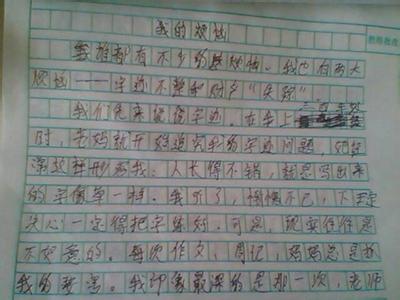 我的烦恼
谁都有不少的烦恼。我也有两大
烦恼——字迹不整和财产“失踪”
我们先来说说字迹。在当上
时，老妈就开始追究我的字迹问题，她常
这样形容我：人长得不错，就是写出来
的字像草一样。我听了，惭愧不已，下定
决心一定得把字练好。可是，现实往往是
不如意的。每次作文，周记，妈妈总是
我的要害。我印象最深的是那一次，老师